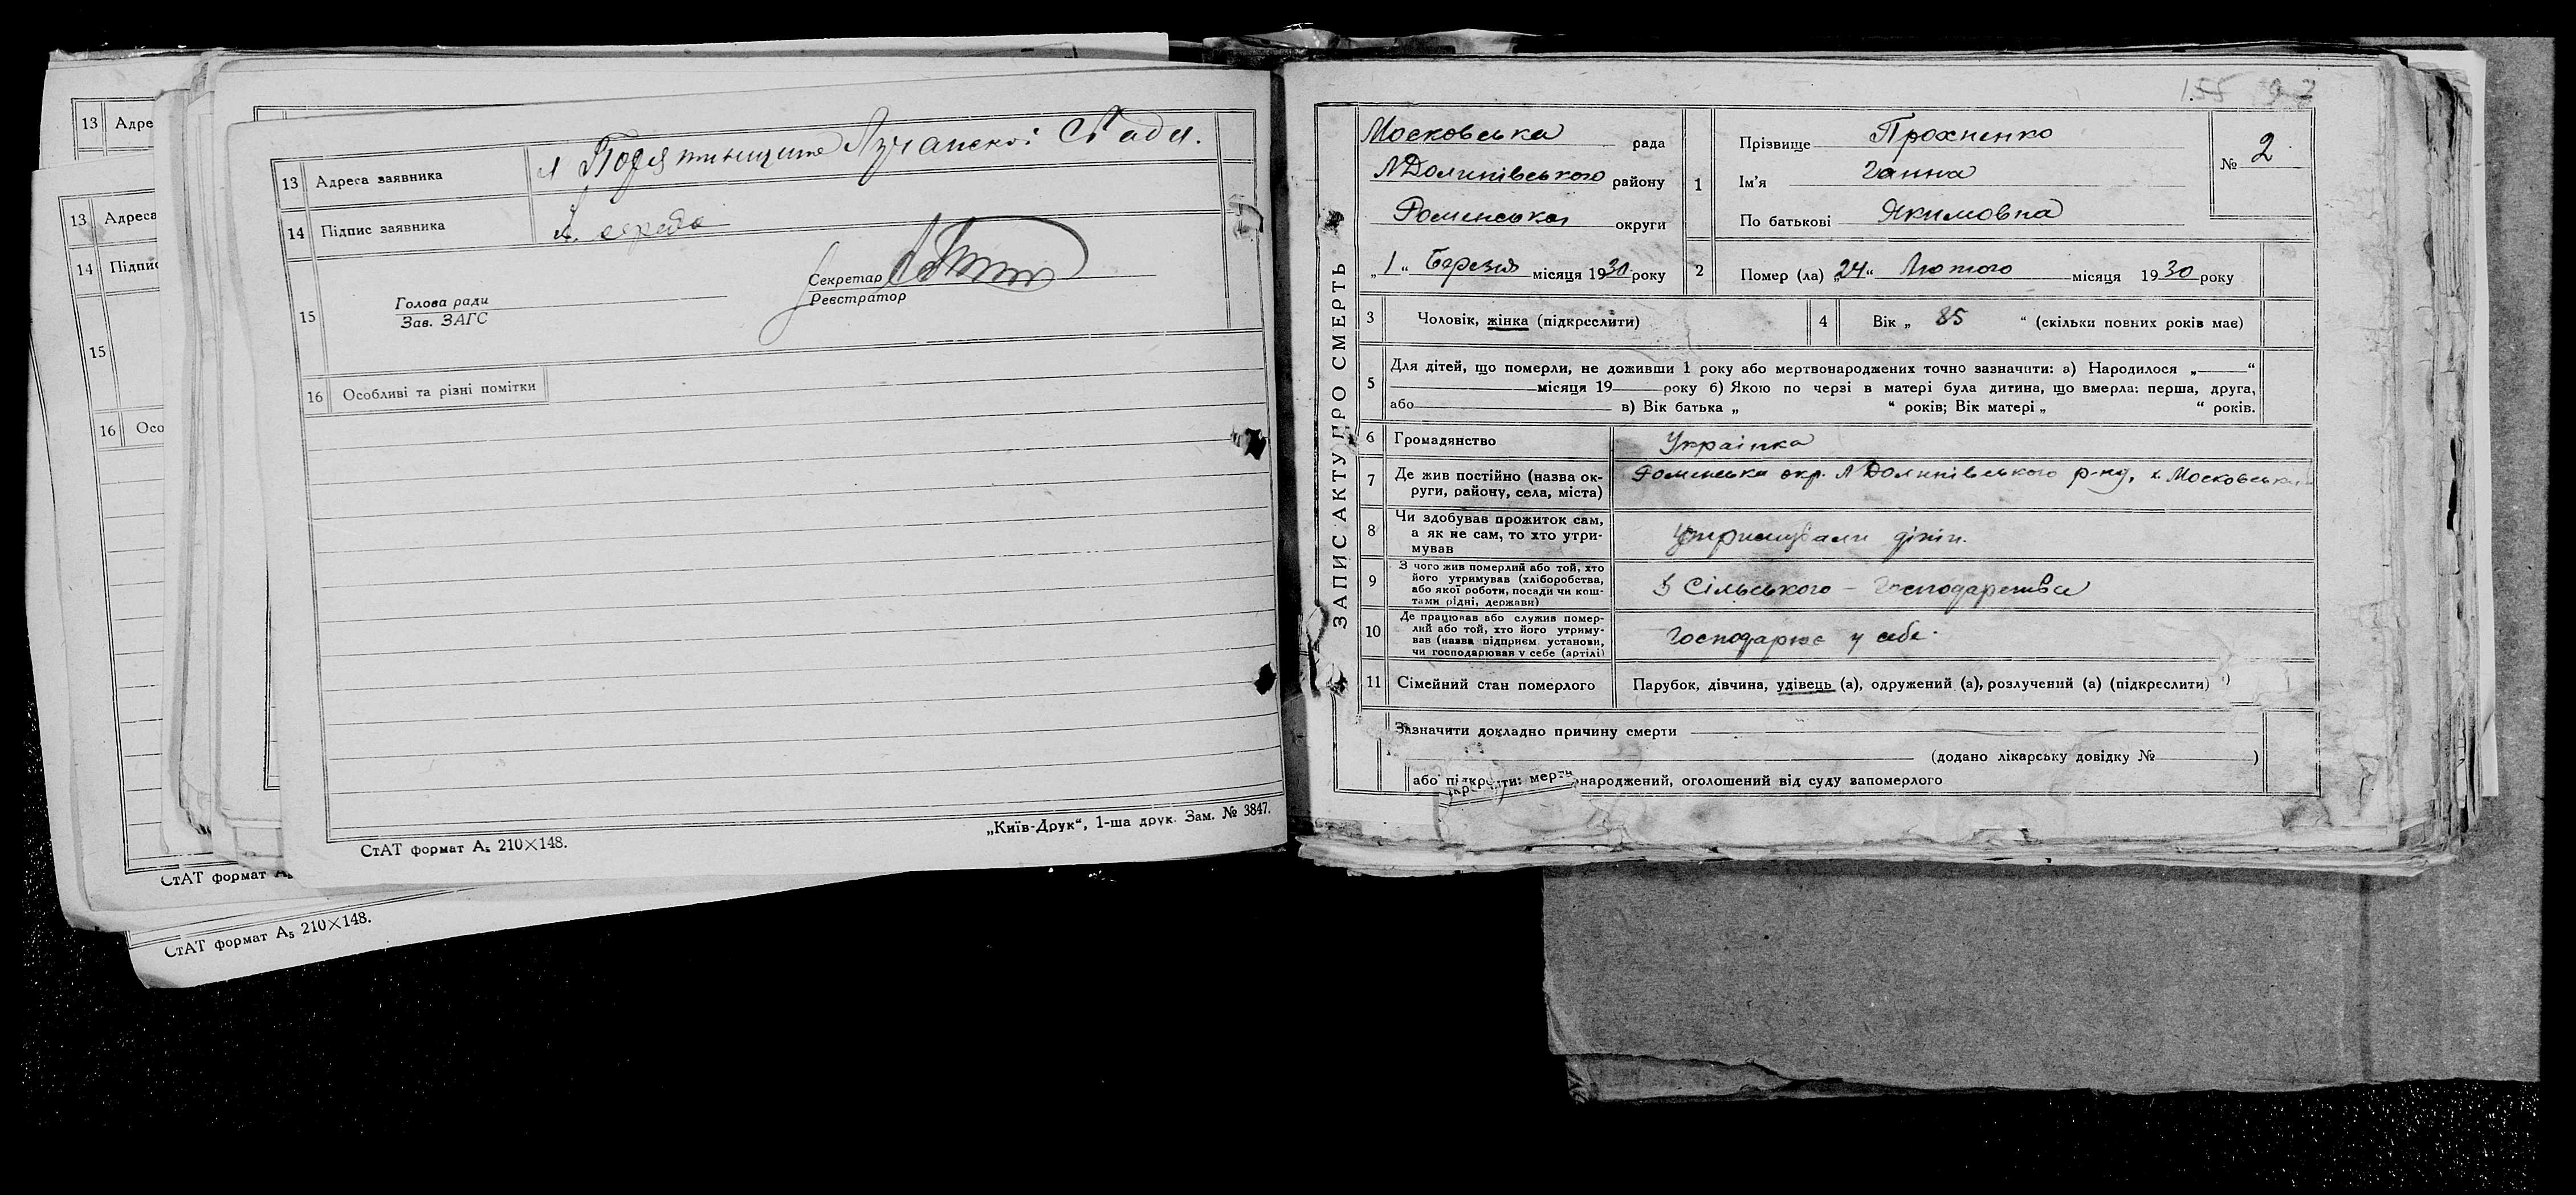 13 Адре
13 Адреса
14 Підпис
15
16 Осо
СтАТ формат А₅
СтАТ формат А₅ 210×148.
13 Адреса заявника Лучанської С/Ради.
14 Підпис заявника
15 Голова ради
Зав. ЗАГС
Секретар
Реєстратор
16 Особливі та різні помітки
СтАТ формат А₅ 210×148.
„Київ-Друк“, 1-ша друк. Зам. № 3847.
155
ЗАПИС АКТУ ПРО СМЕРТЬ
Московська рада
Л Долинівського району
Роменська округи
„1“ Березня місяця 1930 року
1 Прізвище Прохненко
Ім'я Ганна
По батькові Якимовна
№ 2
2 Помер (ла) „24“ Лютого місяця 1930 року
3 Чоловік, жінка (підкреслити)
4 Вік „ 85 “ (скільки повних років має)
5 Для дітей, що померли, не доживши 1 року або мертвонароджених точно зазначити: а) Народилося „ “
місяця 19 року б) Якою по черзі в матері була дитина, що вмерла: перша, друга,
або в) Вік батька „ “ років; Вік матері „ “ років.
6 Громадянство Українка
7 Де жив постійно (назва ок-
руги, району, села, міста)
Роменська окр. Л Долинівського р-ну, х. Московська
8 Чи здобував прожиток сам,
а як не сам, то хто утри-
мував
Утримували діти.
9 З чого жив померлий або той, хто
його утримував (хліборобства,
або якої роботи, посади чи кош-
тами рідні, держави)
З Сільського - Господарства
10 Де працював або служив помер-
лий або той, хто його утриму-
вав (назва підприєм. установи,
чи господарював у себе (артілі)
Господарює у себе.
11 Сімейний стан померлого Парубок, дівчина, удівець (а), одружений (а), розлучений (а) (підкреслити)
Зазначити докладно причину смерти
(додано лікарську довідку № )
або підкреслити: мертвонароджений, оголошений від суду запомерлого